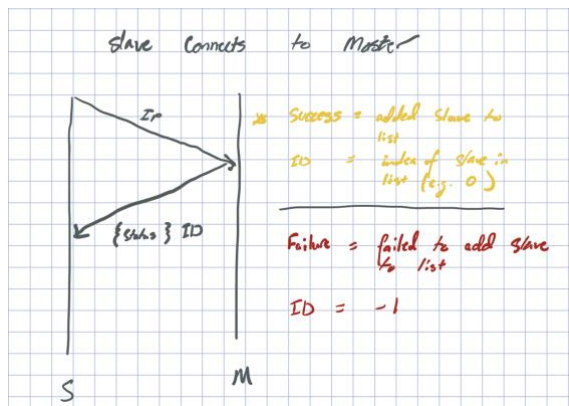 Slave Connects to Master
IP
{status} ID
S
M
* Success = added slave to
list
ID = index of slave in
list (e.g. 0)
Failure = failed to add slave
to list
ID = -1